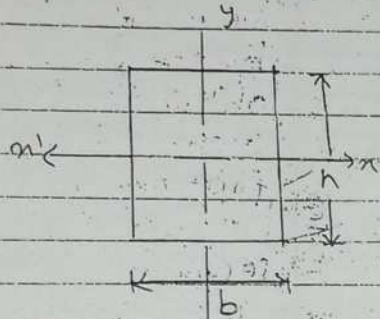 y
x' x
h
b